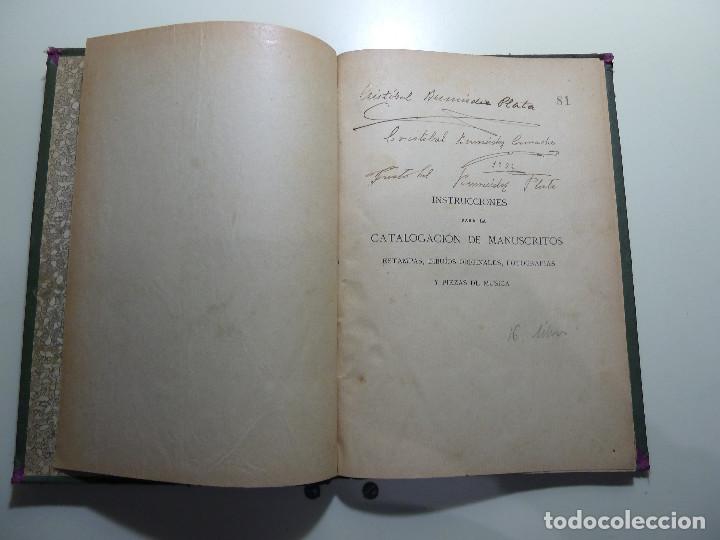 Cristóbal Bermúdez Plata
81
Cristobal Bermúdez Camacho
Bermúdez Plata
INSTRUCCIONES
PARA LA
CATALOGACIÓN DE MANUSCRITOS
ESTAMPAS, DIBUJOS ORIGINALES, FOTOGRAFIAS
Y PIEZAS DE MÚSICA
16
todocoleccion.net